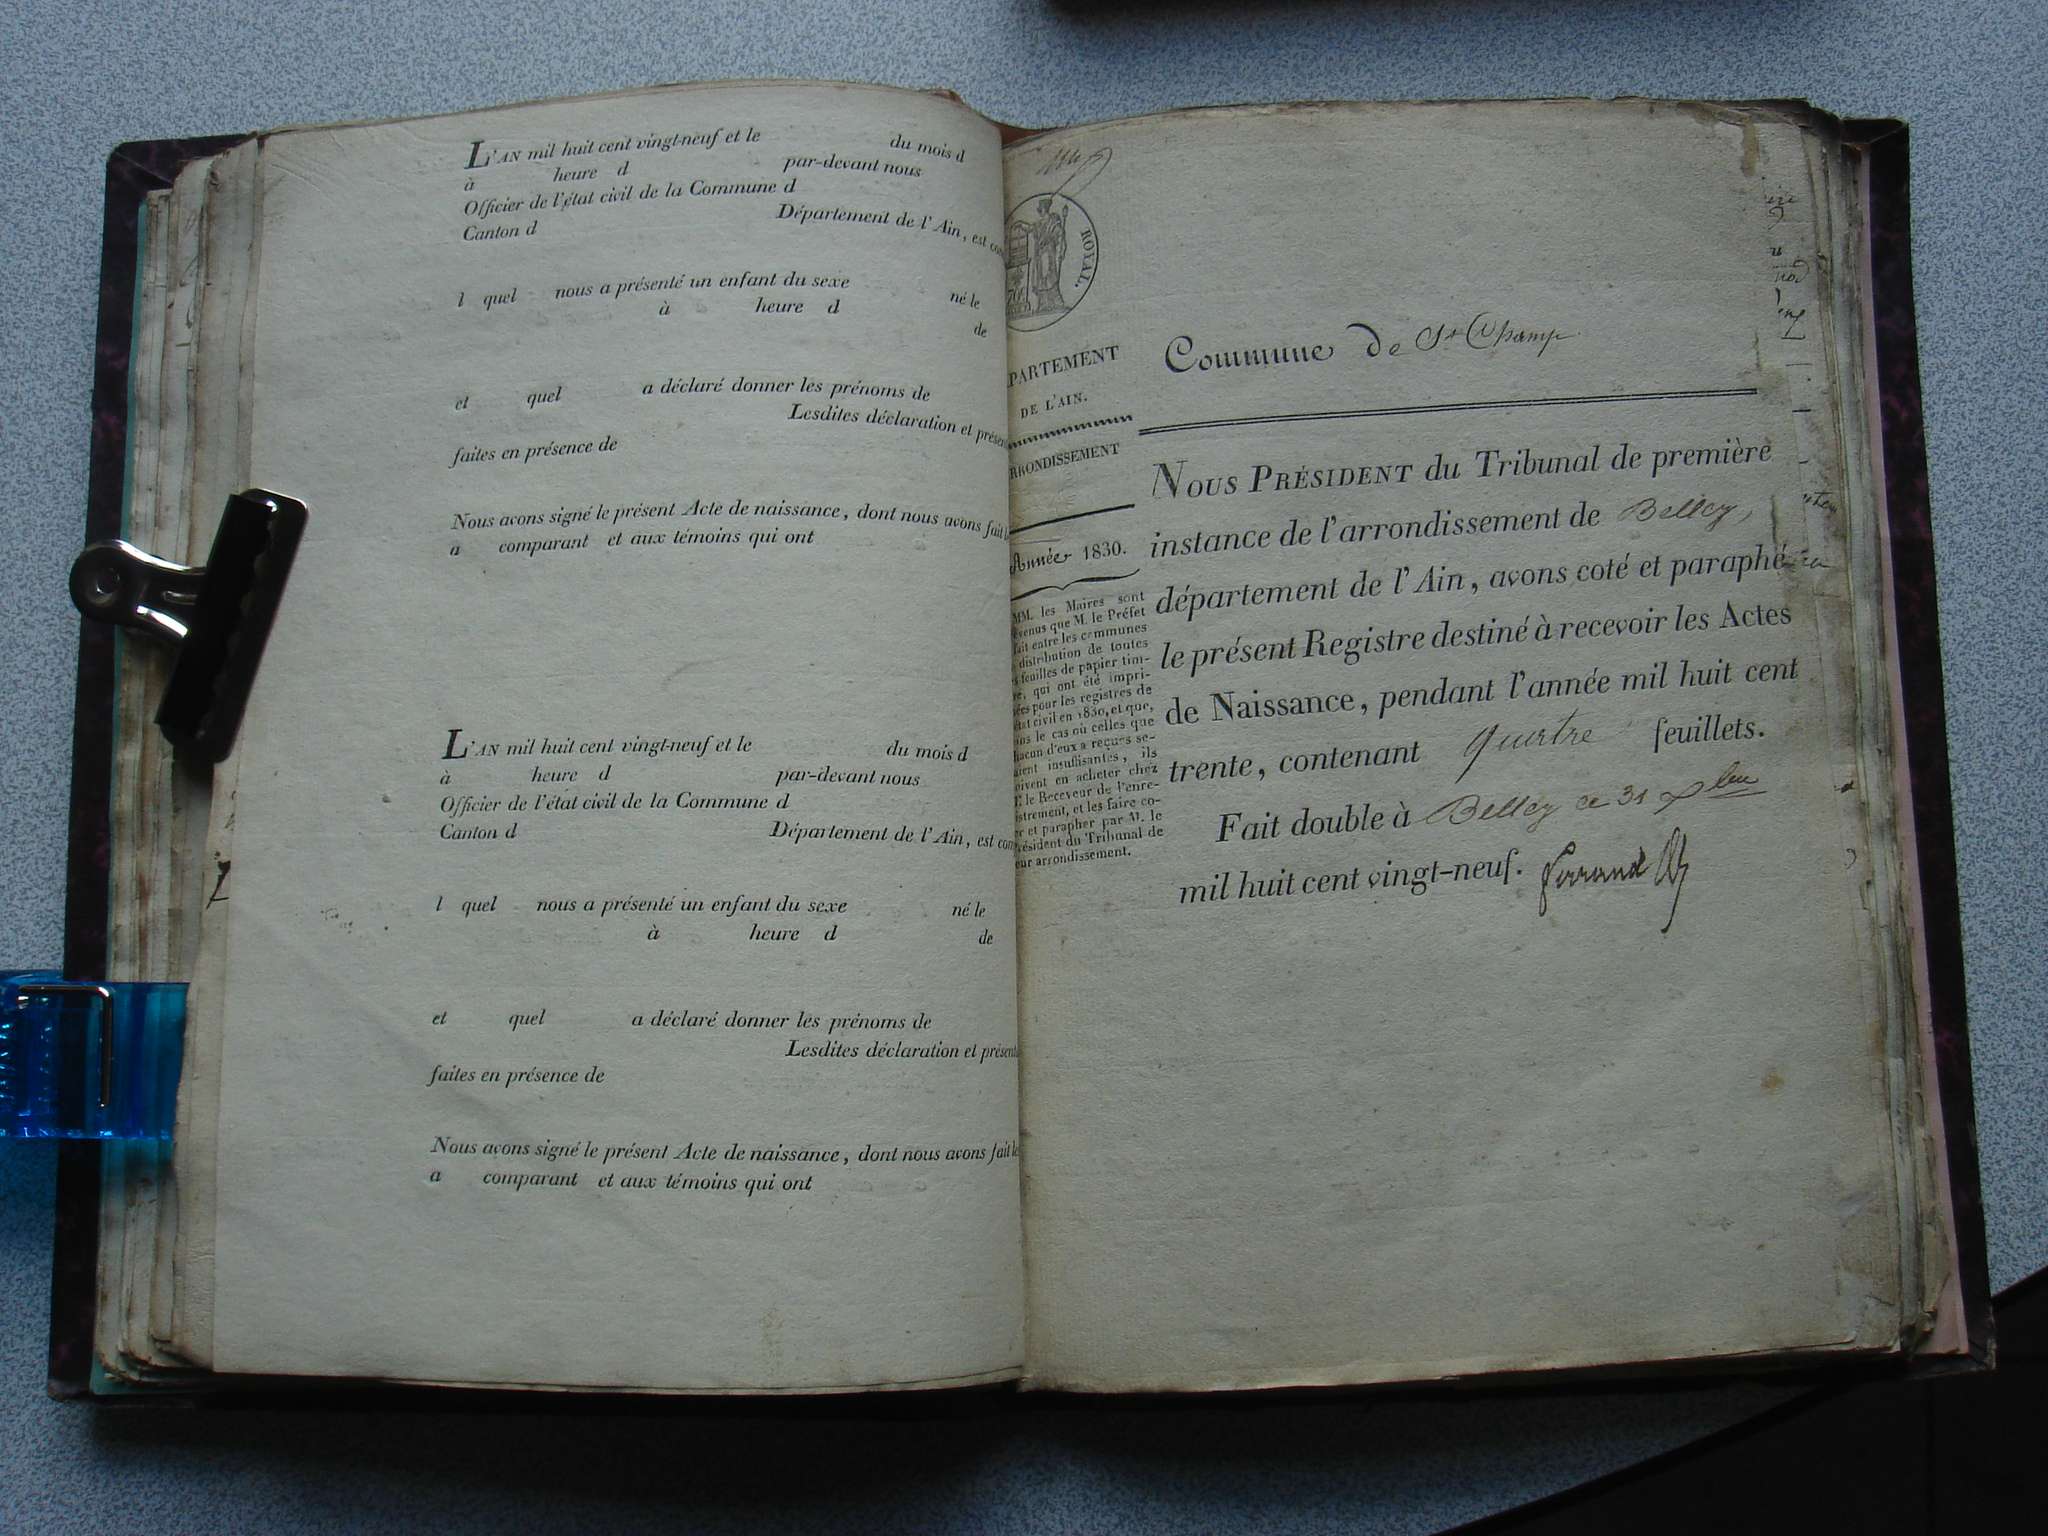 L'AN mil huit cent vingt-neuf et le du mois d
à heure d par-devant nous
Officier de l'état civil de la Commune d
Canton d Département de l'Ain, est com
l quel nous a présenté un enfant du sexe né le
à heure d de
et quel a déclaré donner les prénoms de
Lesdites déclaration et présen
faites en présence de
Nous avons signé le présent Acte de naissance, dont nous avons fait l
a comparant et aux témoins qui ont
L'AN mil huit cent vingt-neuf et le du mois d
à heure d par-devant nous
Officier de l'état civil de la Commune d
Canton d Département de l'Ain, est com
l quel nous a présenté un enfant du sexe né le
à heure d de
et quel a déclaré donner les prénoms de
Lesdites déclaration et présent
faites en présence de
Nous avons signé le présent Acte de naissance, dont nous avons fait le
a comparant et aux témoins qui ont
ROYAL.
PARTEMENT
DE L'AIN.
RRONDISSEMENT
Année 1830.
MM. les Maires sont
évenus que M. le Préfet
fait entre les communes
distribution de toutes
s feuilles de papier tim-
ré, qui ont été impri-
ées pour les registres de
état civil en 1830, et que,
ns le cas où celles que
hacun d'eux a reçues se-
aient insuffisantes, ils
oivent en acheter chez
M. le Receveur de l'enre-
istrement, et les faire co-
er et parapher par M. le
résident du Tribunal de
eur arrondissement.
Commune de St Champ
NOUS PRÉSIDENT du Tribunal de première
instance de l'arrondissement de Belley,
département de l'Ain, avons coté et paraphé
le présent Registre destiné à recevoir les Actes
de Naissance, pendant l'année mil huit cent
trente, contenant quatre feuillets.
Fait double à Belley ce 31 Xbre
mil huit cent vingt-neuf.